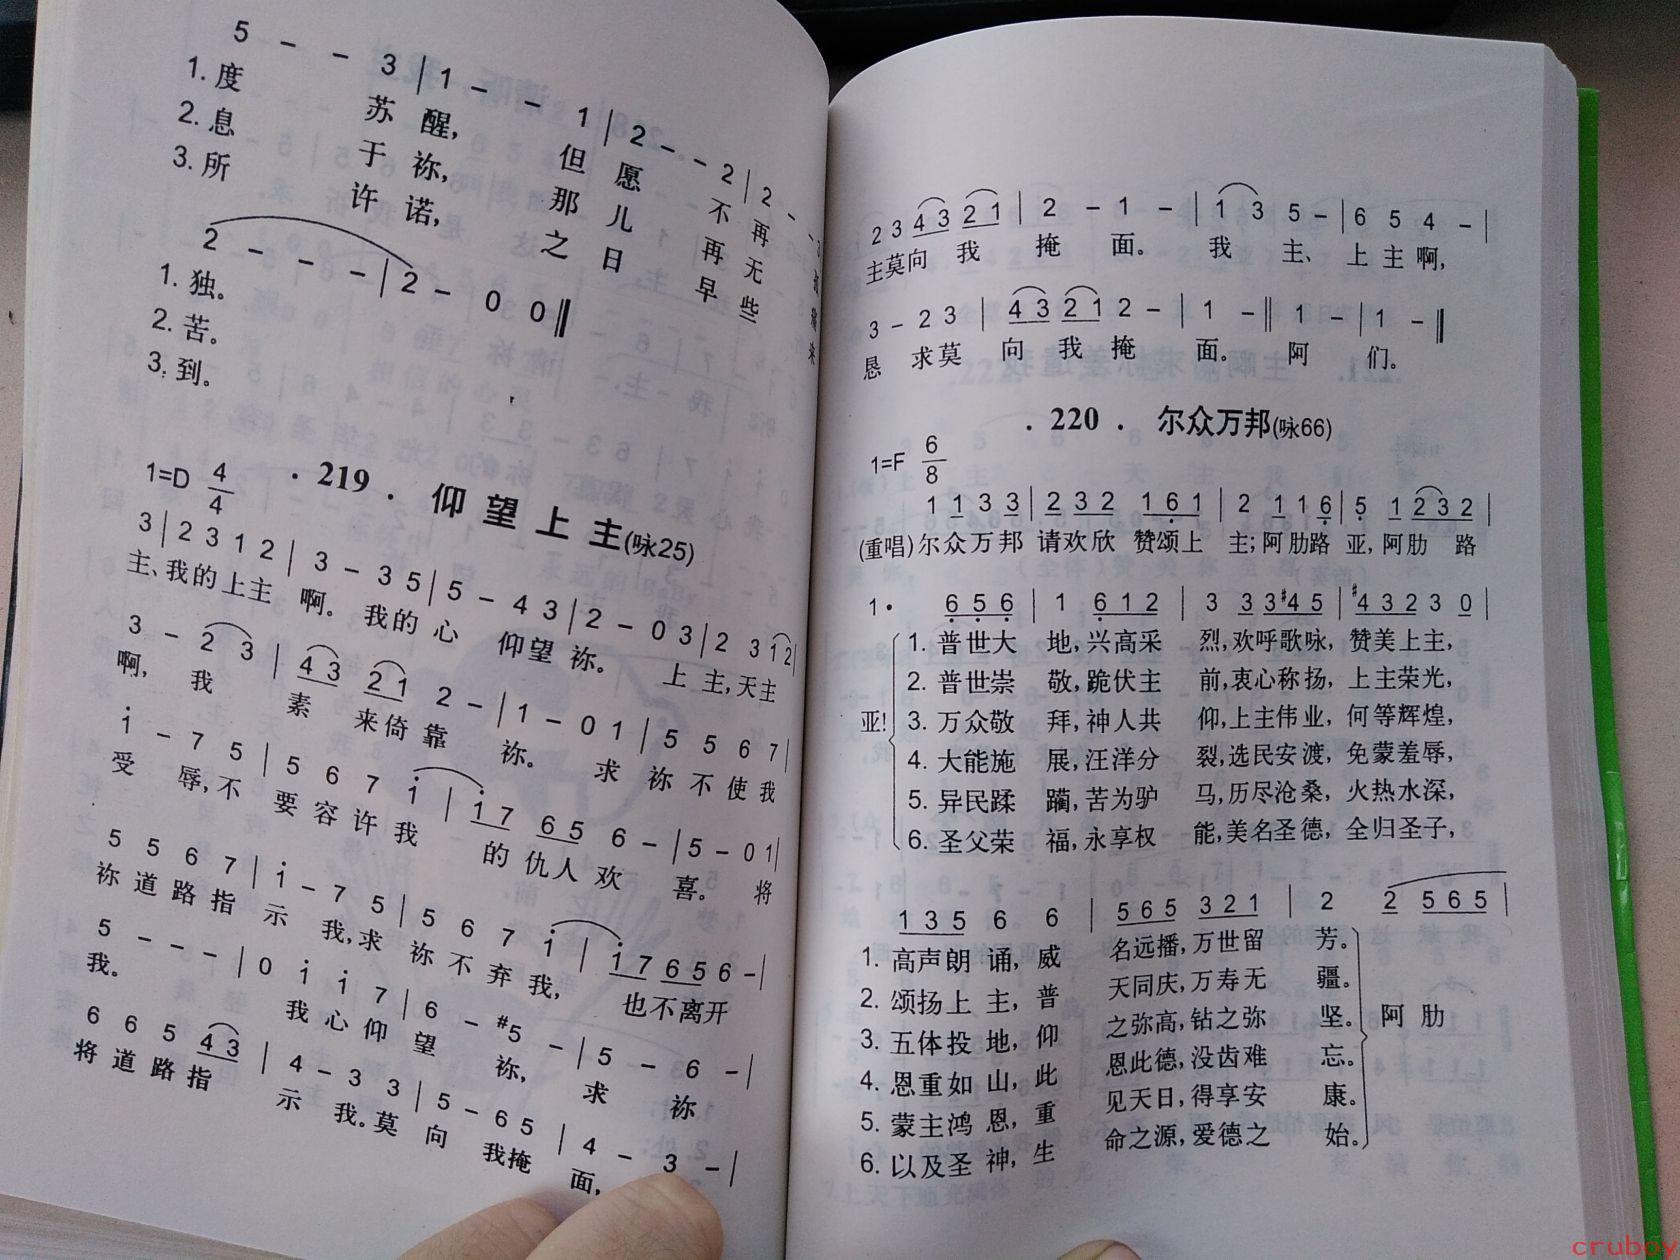 5 - - 3 | 1 - - 1 | 2 - - 2 | 2 - - 3
1. 度 苏 醒, 但 愿 不 再
2. 息 于 祢, 那 儿 再 无
3. 所 许 诺, 之 日 早 些 来
2 - - - | 2 - 0 0 ‖
1. 独。
2. 苦。
3. 到。
· 219 · 仰望上主(咏25)
1=D 4/4
3 | 2 3 1 2 | 3 - 3 5 | 5 - 4 3 | 2 - 0 3 | 2 3 1 2 |
主、我的上主 啊。 我的 心 仰望 祢。 上 主,天主
3 - 2 3 | 4 3 2 1 2 - | 1 - 0 1 | 5 5 6 7 |
啊, 我 素 来倚靠 祢。 求 祢 不 使 我
i - 7 5 | 5 6 7 i | i 7 6 5 6 - | 5 - 0 1 |
受 辱,不 要 容 许 我 的 仇 人 欢 喜。 将
5 5 6 7 | i - 7 5 | 5 6 7 i | i 7 6 5 6 - |
祢 道 路 指 示 我,求 祢 不 弃 我, 也不离开
5 - - - | 0 i i 7 | 6 - #5 - | 5 - 6 - |
我。 我 心 仰 望 祢, 求 祢
6 6 5 4 3 | 4 - 3 3 | 5 - 6 5 | 4 - 3 - |
将 道 路 指 示 我。莫 向 我掩 面,
2 3 4 3 2 1 | 2 - 1 - | 1 3 5 - | 6 5 4 - |
主莫向 我 掩 面。 我 主、 上 主 啊,
3 - 2 3 | 4 3 2 1 2 - | 1 - ‖ 1 - | 1 - ‖
恳 求莫 向 我 掩 面。 阿 们。
· 220 · 尔众万邦(咏66)
1=F 6/8
1 1 3 3 | 2 3 2 1 6 1 | 2 1 1 6 | 5 1 2 3 2 |
(重唱)尔众万邦 请欢欣 赞颂上 主;阿肋路 亚,阿肋 路
1· 6 5 6 | 1 6 1 2 | 3 3 3 #4 5 | #4 3 2 3 0 |
1. 普世大 地,兴高采 烈,欢呼歌咏, 赞美上主,
2. 普世崇 敬,跪伏主 前,衷心称扬, 上主荣光,
亚! 3. 万众敬 拜,神人共 仰,上主伟业, 何等辉煌,
4. 大能施 展,汪洋分 裂,选民安渡, 免蒙羞辱,
5. 异民蹂 躏,苦为驴 马,历尽沧桑, 火热水深,
6. 圣父荣 福,永享权 能,美名圣德, 全归圣子,
1 3 5 6 6 | 5 6 5 3 2 1 | 2 2 5 6 5 |
1. 高声朗 诵,威 名远播,万世留 芳。
2. 颂扬上 主,普 天同庆,万寿无 疆。
3. 五体投 地,仰 之弥高,钻之弥 坚。 阿 肋
4. 恩重如 山,此 恩此德,没齿难 忘。
5. 蒙主鸿 恩,重 见天日,得享安 康。
6. 以及圣 神,生 命之源,爱德之 始。
cruboy